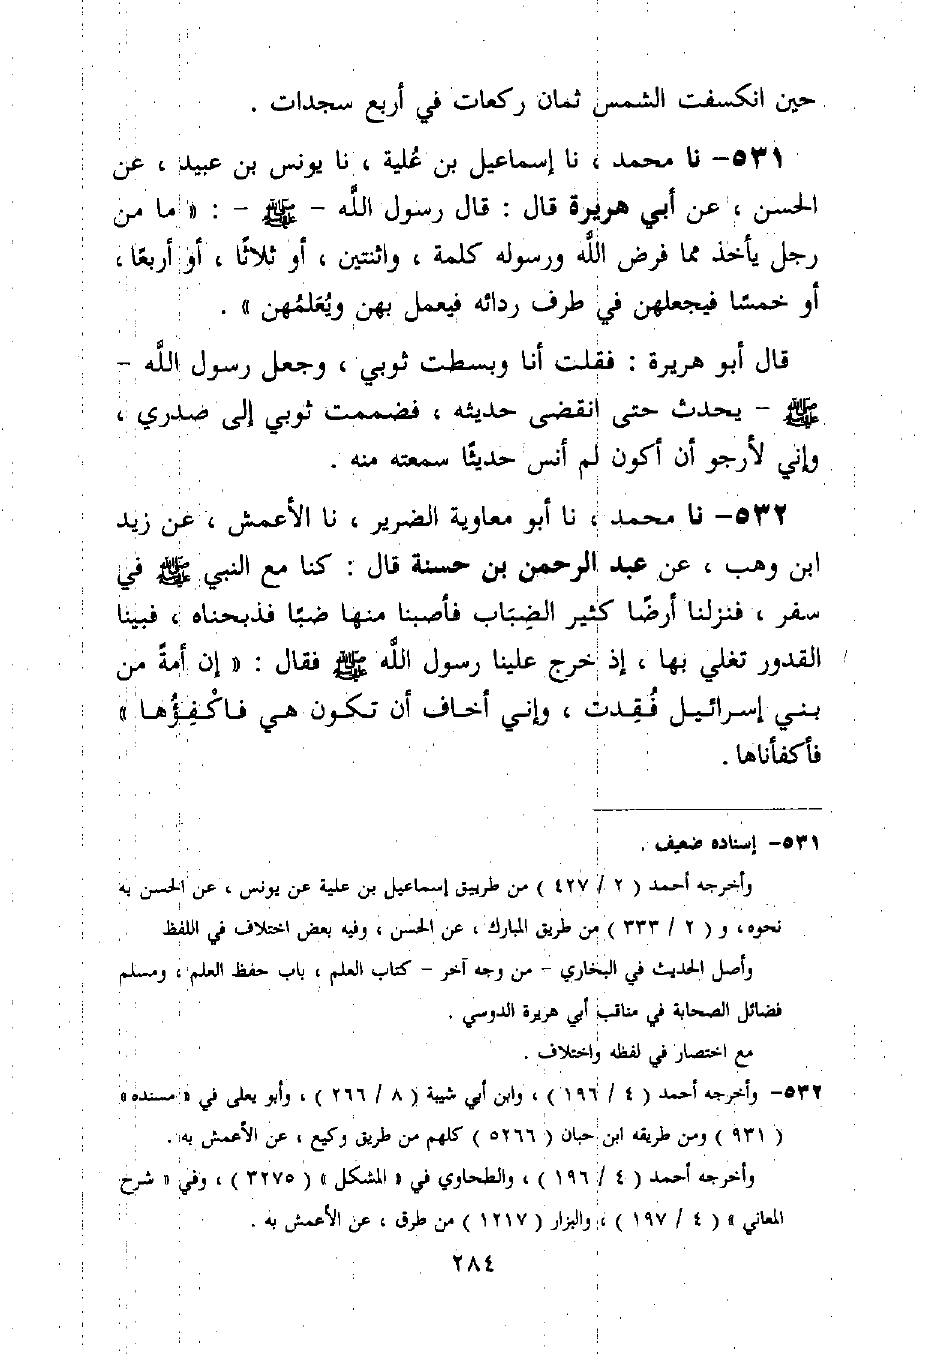 حين انكسفت الشمس ثمان ركعات في أربع سجدات .
٥٣١- نا محمد ، نا إسماعيل بن عُلية ، نا يونس بن عبيد ، عن
الحسن ، عن أبي هريرة قال : قال رسول اللَّه - ﷺ - : « ما من
رجل يأخذ مما فرض اللَّه ورسوله كلمة ، واثنتين ، أو ثلاثًا ، أو أربعًا ،
أو خمسًا فيجعلهن في طرف ردائه فيعمل بهن ويُعَلمُهن » .
قال أبو هريرة : فقلت أنا وبسطت ثوبي ، وجعل رسول اللَّه -
ﷺ - يحدث حتى انقضى حديثه ، فضممت ثوبي إلى صدري ،
وإني لأرجو أن أكون لم أنس حديثًا سمعته منه .
٥٣٢- نا محمد ، نا أبو معاوية الضرير ، نا الأعمش ، عن زيد
ابن وهب ، عن عبد الرحمن بن حسنة قال : كنا مع النبي ﷺ في
سفر ، فنزلنا أرضًا كثير الضِبَاب فأصبنا منها ضبًا فذبحناه ، فبينا
القدور تغلي بها ، إذ خرج علينا رسول اللَّه ﷺ فقال : « إن أمةً من
بني إسرائيل فُقِدت ، وإني أخاف أن تكون هي فاكْفِؤُها »
فأكفأناها .
٥٣١- إسناده ضعيف .
وأخرجه أحمد ( ٢ / ٤٢٧ ) من طريق إسماعيل بن علية عن يونس ، عن الحسن به
نحوه، و ( ٢ / ٣٣٣ ) من طريق المبارك ، عن الحسن ، وفيه بعض اختلاف في اللفظ
وأصل الحديث في البخاري - من وجه آخر - كتاب العلم ، باب حفظ العلم ، ومسلم
فضائل الصحابة في مناقب أبي هريرة الدوسي .
مع اختصار في لفظه واختلاف .
٥٣٢- وأخرجه أحمد ( ٤ / ١٩٦ ) ، وابن أبي شيبة ( ٨ / ٢٦٦ ) ، وأبو يعلى في « مسنده »
( ٩٣١ ) ومن طريقه ابن حبان ( ٥٢٦٦ ) كلهم من طريق وكيع ، عن الأعمش به .
وأخرجه أحمد ( ٤ / ١٩٦ ) ، والطحاوي في « المشكل » ( ٣٢٧٥ ) ، وفي « شرح
المعاني » ( ٤ / ١٩٧ ) ، والبزار ( ١٢١٧ ) من طرق ، عن الأعمش به .
٢٨٤